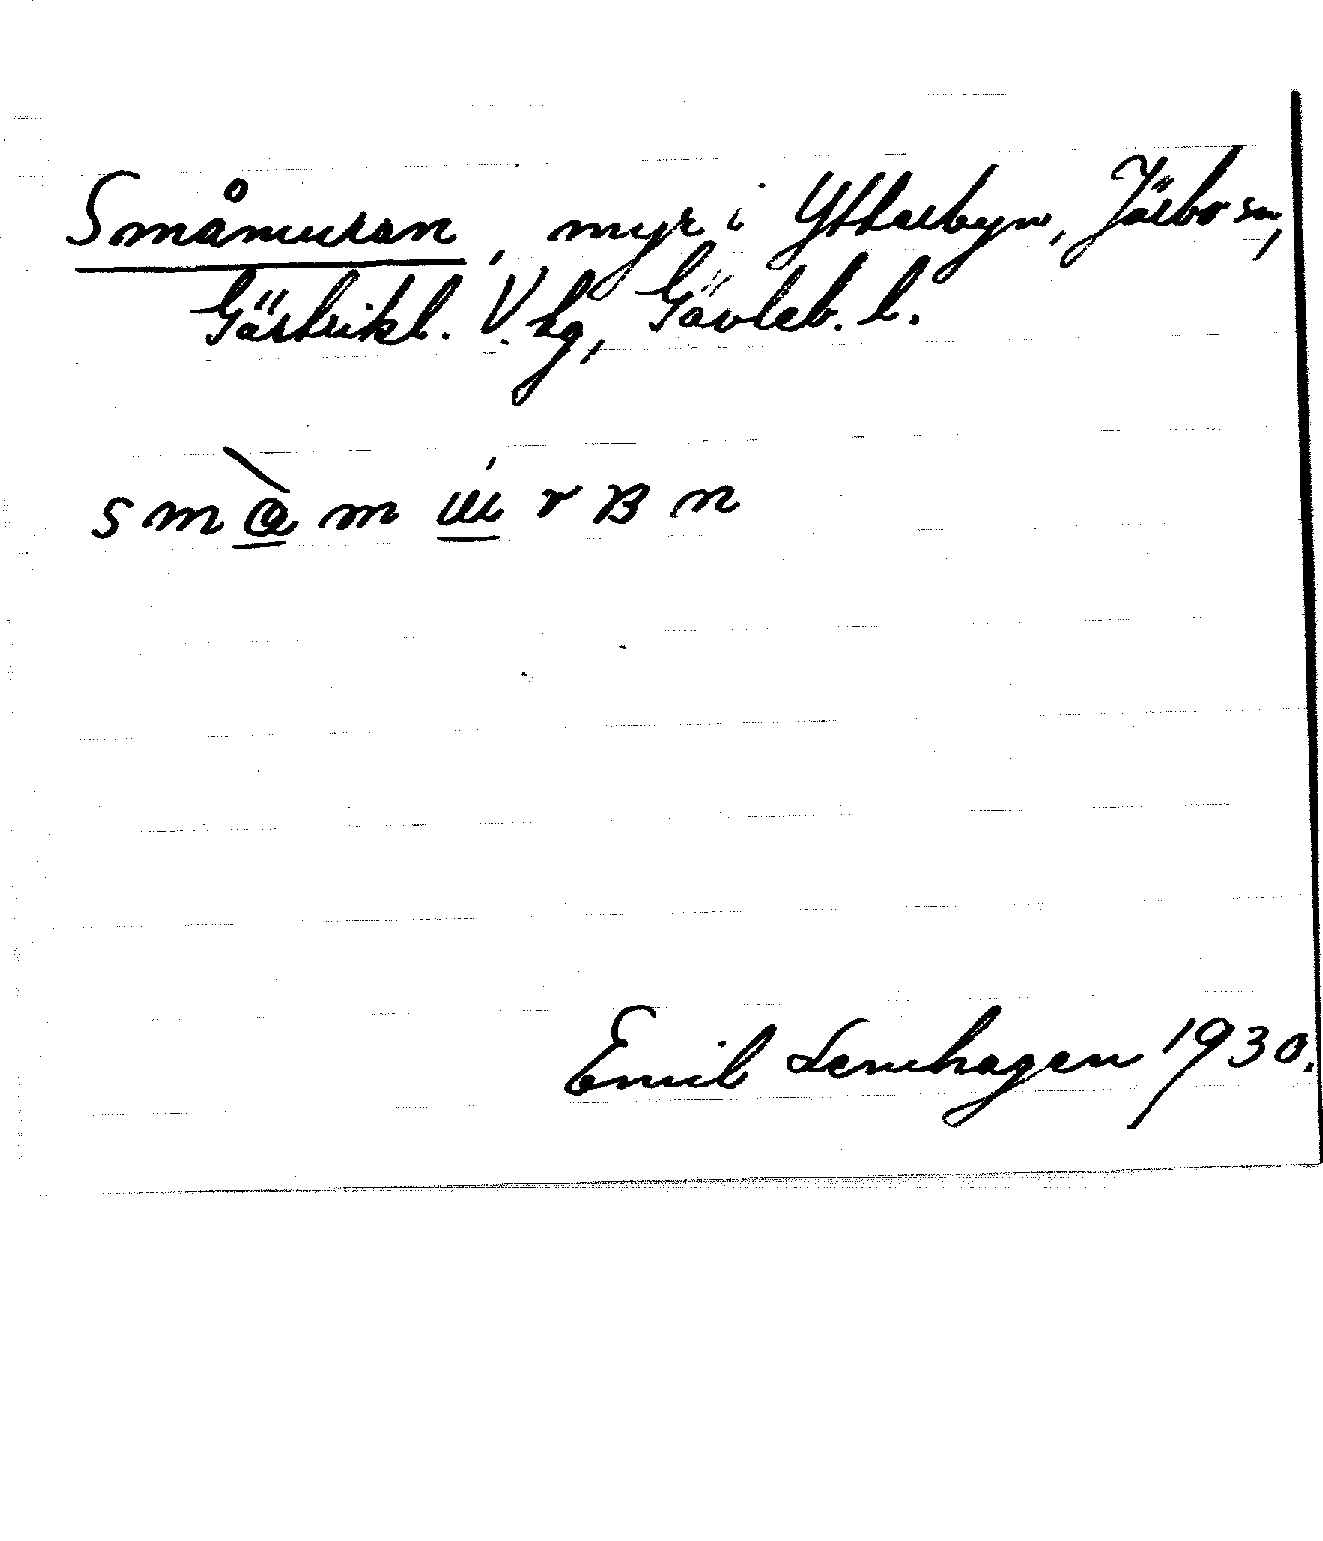 Småmuran, myr i Ytterbyn, Järbo sn,
Gästrikl. V. hg, Gävleb. l.
smam urBn
Emil Lenhagen 1930.